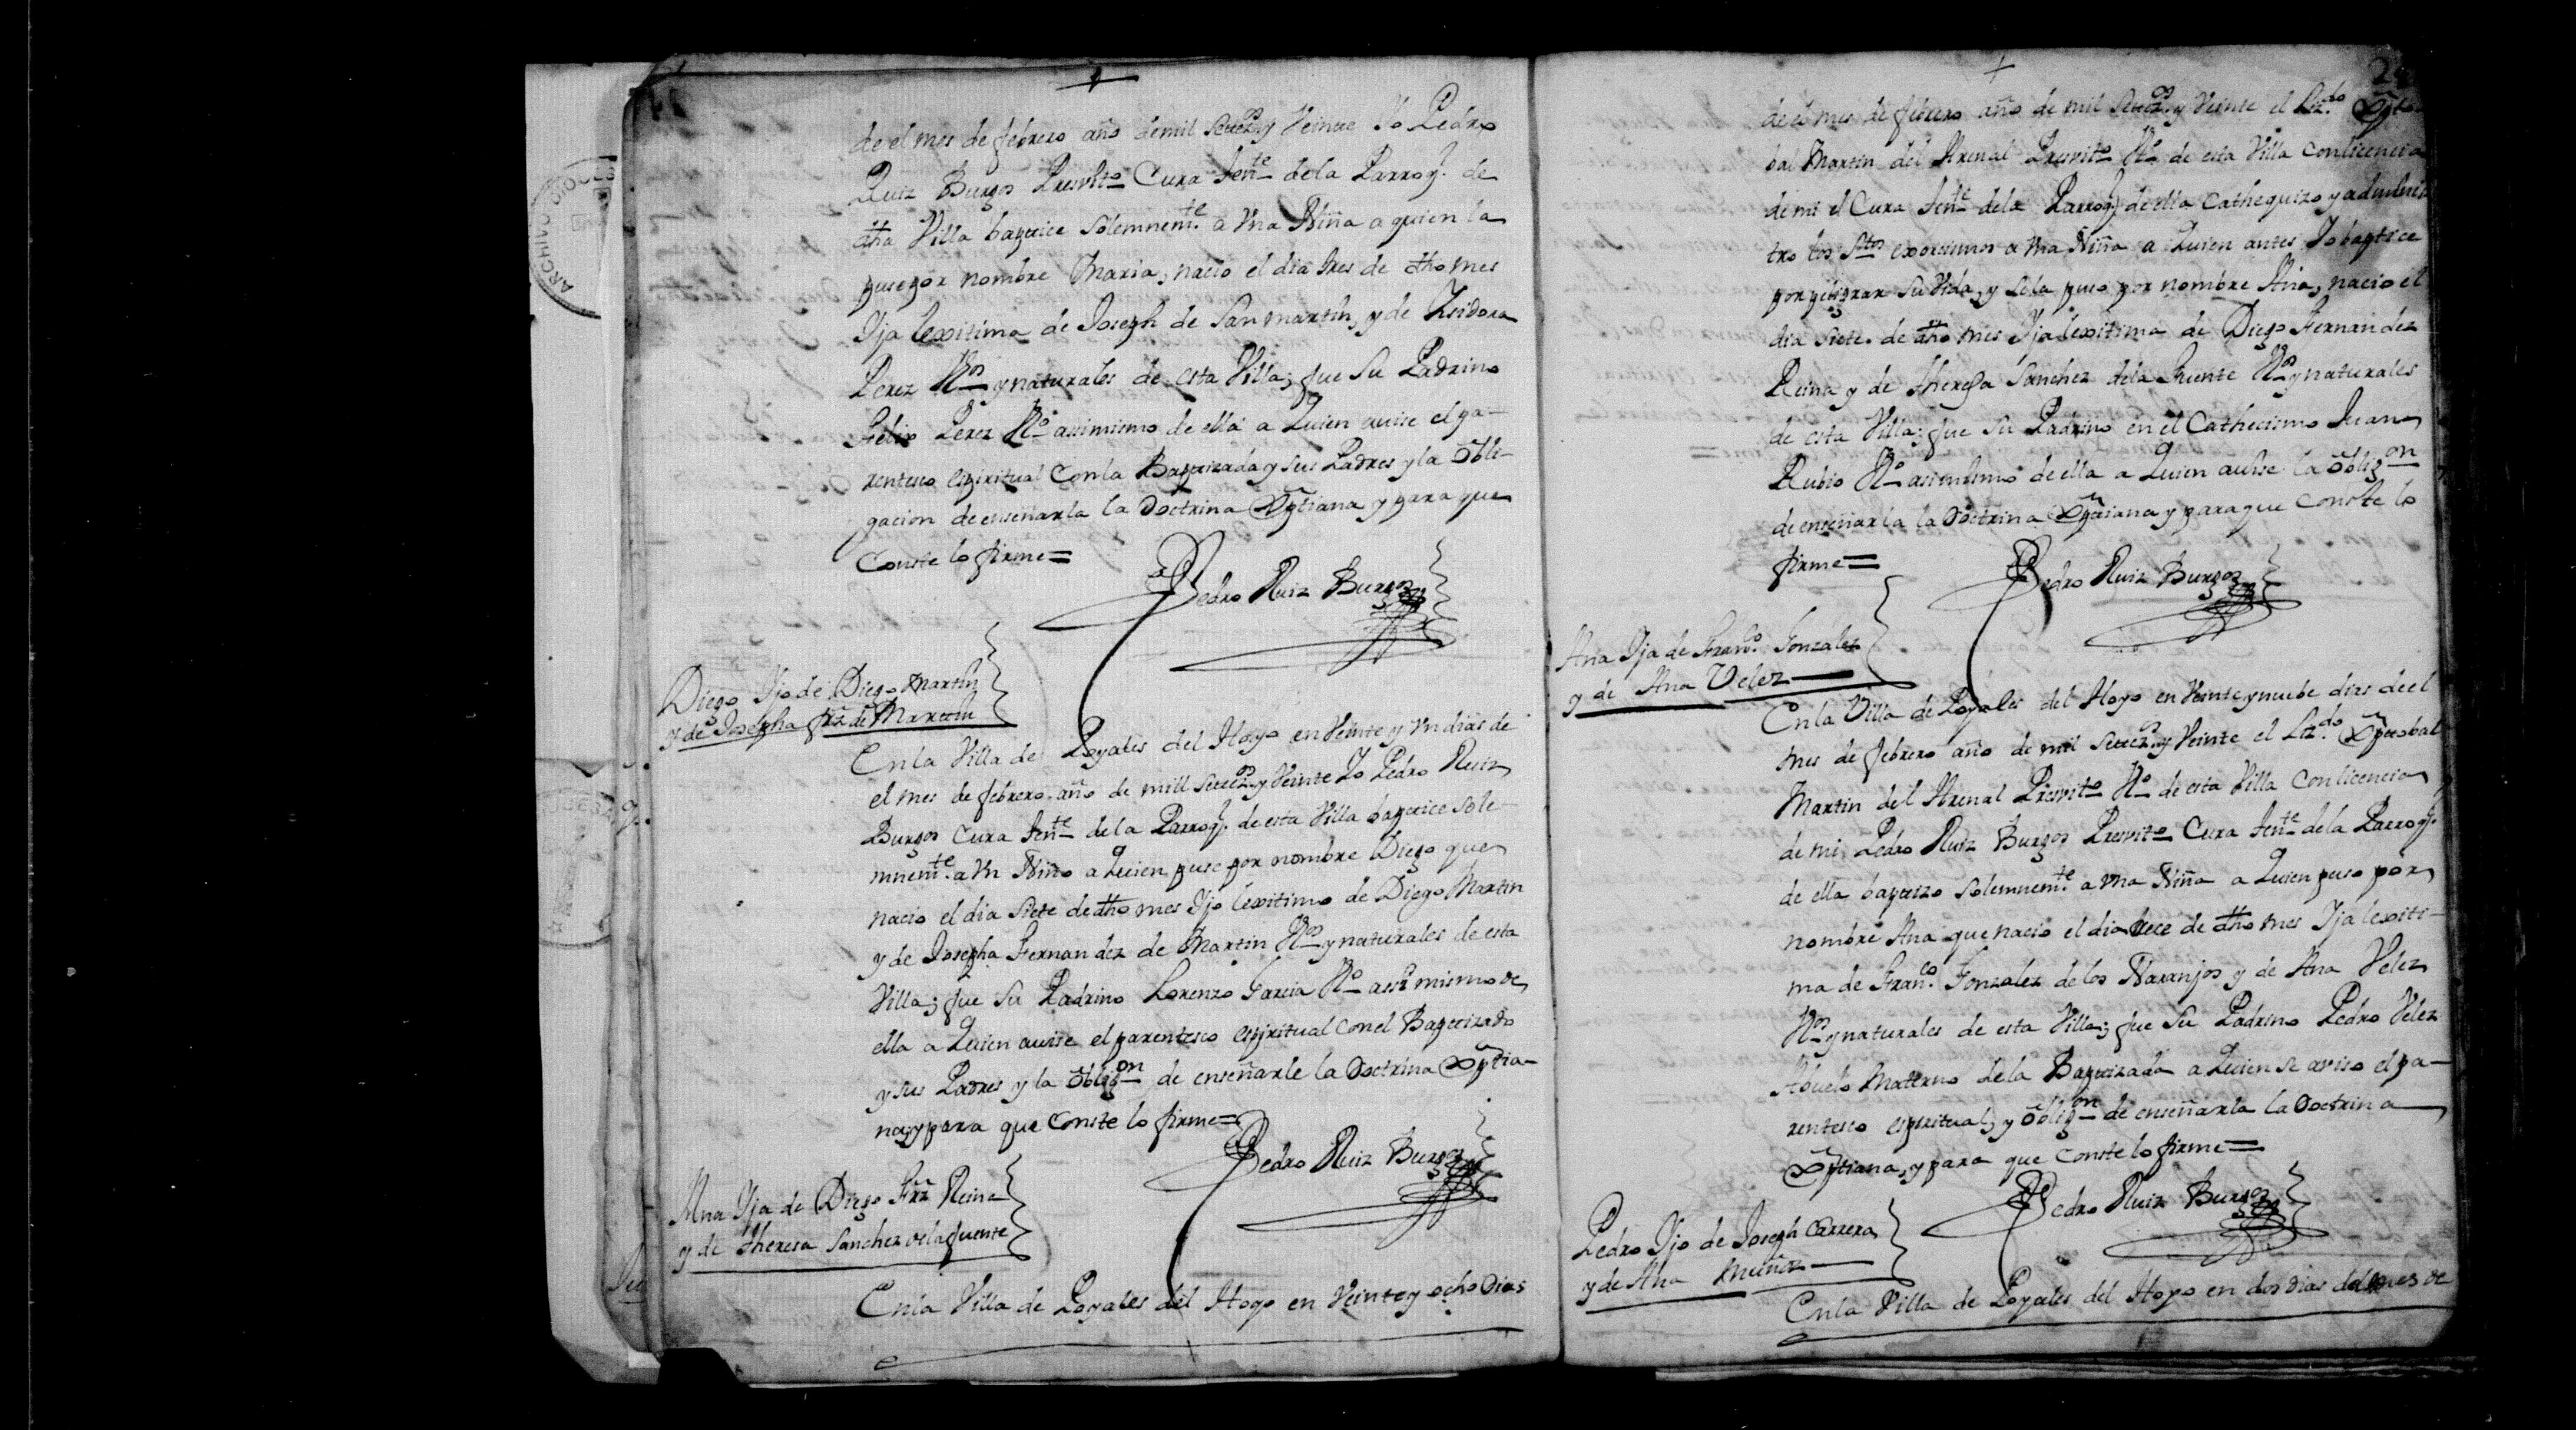 de el mes de febrero año demil Setezos y Veinte Yo Pedro
Ruiz Burgos Presvito Cura tente dela Parroq. de
dha Villa baptice Solemnemte a Vna Niña a quien la
puse por nombre Maria, nacio el dia tres de dho mes
Yja lexitima de Joseph de San martin, y de Ysidora
Perez Vos y naturales de esta Villa; fue Su Padrino
Felix Perez Vo asimismo de ella a Quien avise el pa-
rentesco espiritual Con la Baptizada y sus Padres y la obli-
gacion de enseñarla la Doctrina Xptiana y para que
Conste lo firme=
Pedro Ruiz Burgos
Diego Yjo de Diego Martin
y de Josepha frz de Martin
En la Villa de Poyales del Hoyo en Veinte y Vn dias de
el mes de febrero año de mill Setezos y Veinte Yo Pedro Ruiz
Burgos Cura tente de la Parroq. de esta Villa baptice Sole-
mnemte a Vn Niño a Quien puse por nombre Diego que
nacio el dia Siete de dho mes Yjo lexitimo de Diego Martin
y de Josepha Fernandez de Martin Vos y naturales de esta
Villa; fue Su Padrino Lorenzo Garcia Vo assi mismo de
ella a Quien avise el parentesco espiritual con el Baptizado
y sus Padres y la obligon de enseñarle la Doctrina Xptia-
na, y para que Conste lo firme=
Pedro Ruiz Burgos
Ana Yja de Diego Frz Reina
y de theresa Sanchez de la fuente
En la Villa de Poyales del Hoyo en Veinte y ocho Dias
de el mes de febrero año de mil Setezos y Veinte el Lizdo Xpto-
bal Martin del Arenal Presvito Vo de esta Villa con licencia
de mi el Cura tente dela Parroq. de ella Cathequizo y adminis
tro los Stos exorcismos a Vna Niña a Quien antes Yo baptice
por peligrar Su Vida, y Sela puso por nombre Ana, nacio el
dia Siete de dho mes Yja lexitima de Diego Fernandez
Reina y de theresa Sanchez dela Fuente Vos y naturales
de esta Villa; fue Su Padrino en el Cathecismo Juan
Rubio Vo asimismo de ella a Quien avise la obligon
de enseñarla la Doctrina Xptiana y para que Conste lo
firme=
Pedro Ruiz Burgos
Ana Yja de Franco Gonzalez
y de Ana Velez
En la Villa de Poyales del Hoyo en Veinte y nuebe dias de el
mes de febrero año de mil Setezos y Veinte el Lizdo Xptobal
Martin del Arenal Presvito Vo de esta Villa Con licencia
de mi Pedro Ruiz Burgos Presvito Cura tente dela Parroq.
de ella baptizo Solemnemte a Vna Niña a Quien puso por
nombre Ana que nacio el dia trece de dho mes Yja lexiti-
ma de Franco Gonzalez de los Naranjos y de Ana Velez
Vos y naturales de esta Villa; fue Su Padrino Pedro Velez
Abuelo Materno dela Baptizada a Quien se aviso el pa-
rentesco espiritual, y obligon de enseñarla la Doctrina
Xptiana, y para que Conste lo firme=
Pedro Ruiz Burgos
Pedro Yjo de Joseph Carrera
y de Ana Muñoz
En la Villa de Poyales del Hoyo en dos dias del mes de